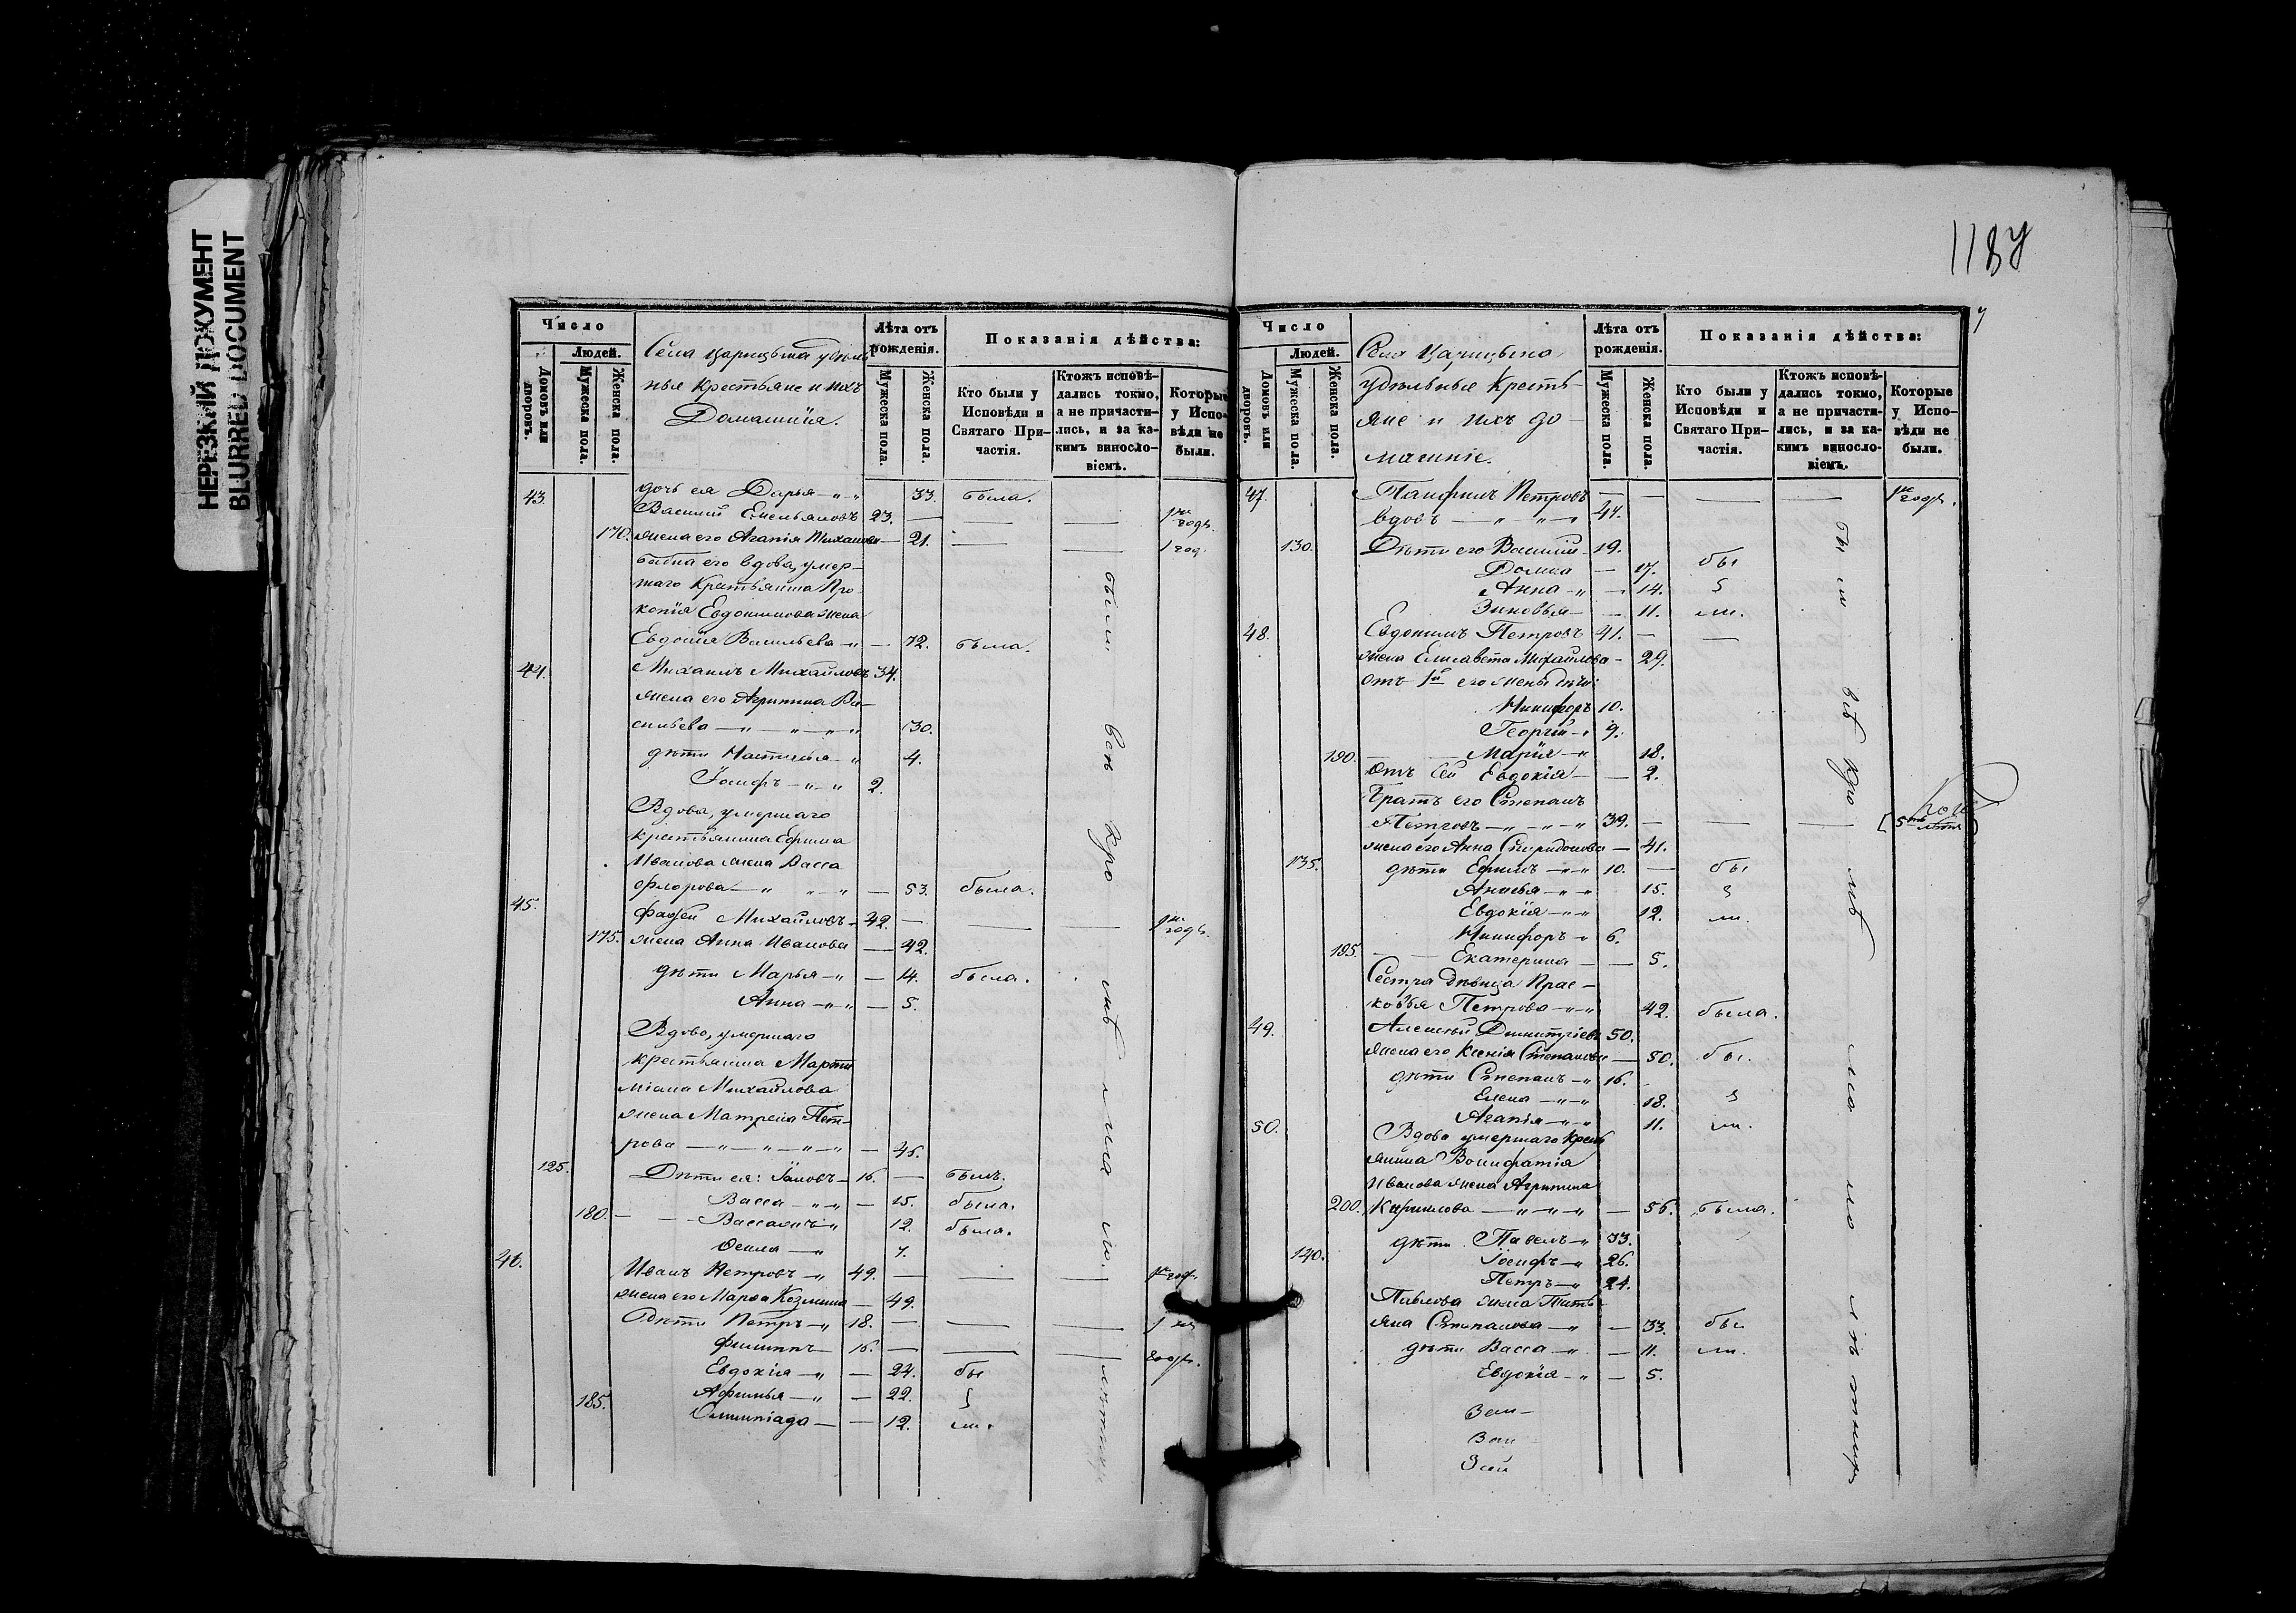 НЕРЕЗКИЙ ДОКУМЕНТ
BLURRED DOCUMENT
1187
Число
Людей.
Домовъ или дворовъ.
Мужеска пола.
Женска пола.
Села Царицына удѣль
ныя крестьяне и ихъ
Домашнія.
Лѣта отъ рожденія.
Мужеска пола.
Женска пола.
Показанія дѣйства:
Кто были у Исповѣди и Святаго Причастія.
Ктожъ исповѣдались токмо, а не причастились, и за какимъ винословіемъ.
Которые у Исповѣди не были.
43. дочь ея Дарья 33. была.
Василій Емельяновъ 23. годъ.
170. жена его Агапія 21. 1 год.
бабка его вдова, умер-
шаго Крестьянина Про
копія Евдокимова жена
Евдокія Васильева 72. была.
44. Михаилъ Михайловъ 34.
жена его Агрипина Ва-
сильева 30.
дѣти Настасья 4.
Іосифъ 2.
Вдова, умершаго
крестьянина Ефима
Иванова жена Васса
Флорова 53. была.
45. Фадѣй Михайловъ 42. годъ.
175. жена Анна Иванова 42.
дѣти Марья 14. была.
Анна 5.
Вдова, умершаго
крестьянина Марти
міана Михайлова
жена Матрена Пет-
рова 45.
125. Дѣти ея: Іаковъ 16. былъ.
Васса 15. была.
180. 12. была.
7.
46. Иванъ Петровъ 49.
жена его Марѳа Козмина 49.
дѣти Петръ 18.
Филиппъ 16.
Евдокія 24. бы
Афимья 22.
185. Олимпіада 12. ли.
были всѣ кро мѣ
Число
Людей.
Домовъ или дворовъ.
Мужеска пола.
Женска пола.
Села Царицына
удѣльныя Кресть-
яне и ихъ до-
машніе.
Лѣта отъ рожденія.
Мужеска пола.
Женска пола.
Показанія дѣйства:
Кто были у Исповѣди и Святаго Причастія.
Ктожъ исповѣдались токмо, а не причастились, и за какимъ винословіемъ.
Которые у Исповѣди не были.
47. Панфилъ Петровъ
вдовъ 44.
130. Дѣти его Василій 19.
Домна 17. бы
Анна 14.
Зиновья 11. ли.
48. Евдокимъ Петровъ 41.
жена Елисавета Михайлова 29.
отъ 1й его жены дѣти:
Никифоръ 10.
Георгій 9.
190. Марія 18.
Отъ сей Евдокія 2.
Братъ его Степанъ
Петровъ 39.
жена его Анна Спиридонова 41.
135. дѣти Ефимъ 10. бы
15.
Евдокія 12. ли.
Никифоръ 6.
195. Екатерина 5.
Сестра дѣвица Прас-
ковья Петрова 42. была.
49. Алексѣй Димитріевъ 50.
жена его Ксенія Степанова 50. бы.
дѣти Степанъ 16.
Елена 18.
Агапія 11. ли.
50. Вдова умершаго крест
янина Вонифатія
Иванова жена Агрипина
200. Кирилова 56. была.
дѣти Павелъ 33.
140. Іосифъ 26.
Петръ 24.
Павлова жена Тать-
яна Степанова 33. бы
дѣти Васса 11. ли.
Евдокія 5.